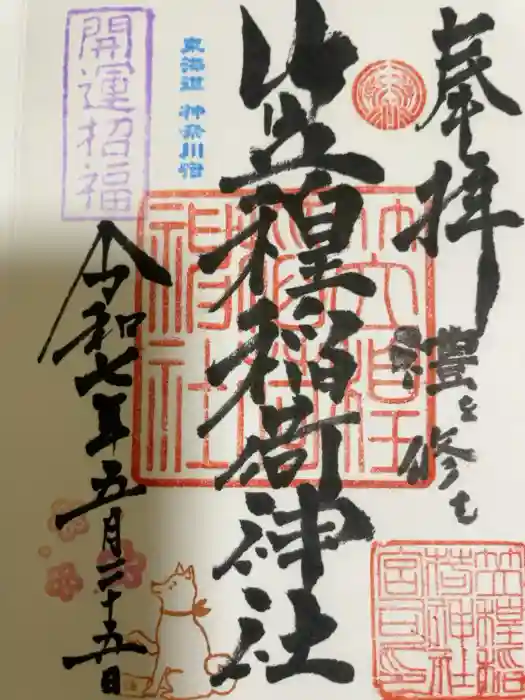 奉拝
禮を修む
東海道 神奈川宿
笠䅣稲荷神社
開運招福
令和七年五月二十五日
笠䅣
稲荷
神社
笠䅣稲
荷神社
宮司印